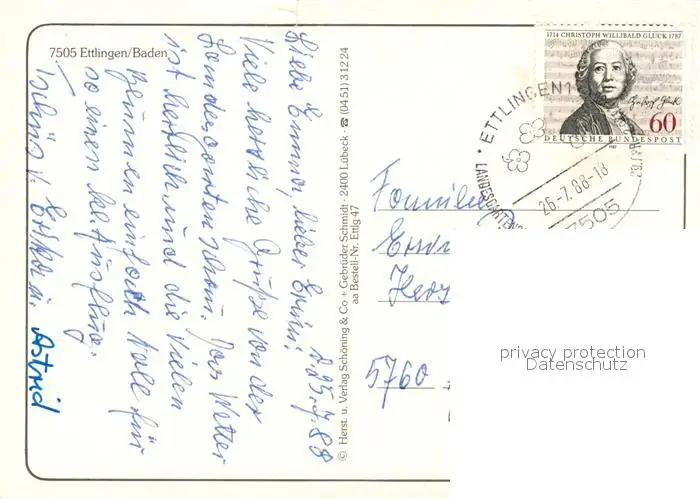 7505 Ettlingen/Baden
d. 25.7.88
Liebe Emma, lieber Erwin!
Viele herzliche Grüße von der
Landesgartenschau. Das Wetter
ist herrlich und die vielen
Blumen einfach toll für
so einen Ausflug.
Tschüs
Astrid
© Herst. u. Verlag Schöning & Co + Gebrüder Schmidt · 2400 Lübeck · ☎ (04 51) 3 12 24
aa Bestell-Nr. Ettlg 47
1714 CHRISTOPH WILLIBALD GLUCK 1787
60
DEUTSCHE BUNDESPOST
ETTLINGEN 1
26.-7.88-18
7505
Familie
5760
privacy protection
Datenschutz